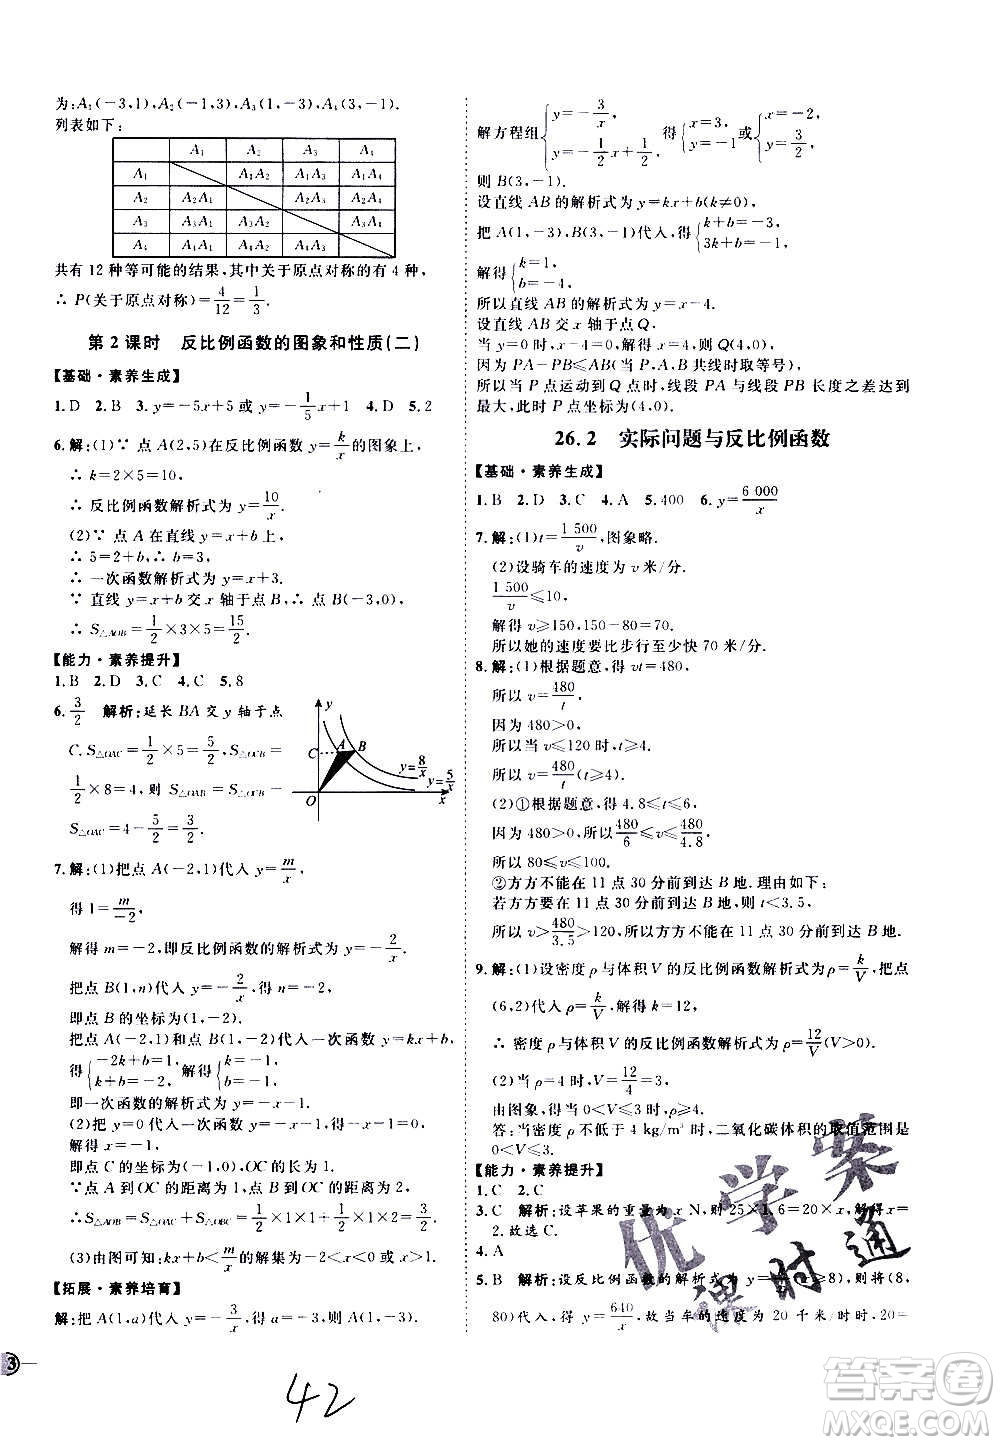 为:A₁(-3,1),A₂(-1,3),A₃(1,-3),A₄(3,-1).
列表如下:
A₁ A₂ A₃ A₄
A₁ A₁A₂ A₁A₃ A₁A₄
A₂ A₂A₁ A₂A₃ A₂A₄
A₃ A₃A₁ A₃A₂ A₃A₄
A₄ A₄A₁ A₄A₂ A₄A₃
共有 12 种等可能的结果,其中关于原点对称的有 4 种,
∴ P(关于原点对称)=4/12=1/3.
第 2 课时 反比例函数的图象和性质(二)
【基础·素养生成】
1.D 2.B 3.y=-5x+5 或 y=-1/5x+1 4.D 5.2
6.解:(1)∵ 点 A(2,5)在反比例函数 y=k/x 的图象上,
∴ k=2×5=10,
∴ 反比例函数解析式为 y=10/x.
(2)∵ 点 A 在直线 y=x+b 上,
∴ 5=2+b,∴ b=3.
∴ 一次函数解析式为 y=x+3.
∵ 直线 y=x+b 交 x 轴于点 B(-3,0),
∴ S△AOB=1/2×3×5=15/2.
【能力·素养提升】
1.B 2.D 3.A 4.C 5.8
6.3/2 解析:延长 BA 交 y 轴于点
C.S△OAC=1/2×5=5/2,S△OCB=
1/2×8=4,则 S△OAB=S△OCB-
S△OAC=4-5/2=3/2.
y
C A B
y=8/x
y=5/x
O x
7.解:(1)把点 A(-2,1)代入 y=m/x,
得 1=m/-2,
解得 m=-2,即反比例函数的解析式为 y=-2/x.
把点 B(1,n)代入 y=-2/x,得 n=-2,
即点 B 的坐标为(1,-2).
把点 A(-2,1)和点 B(1,-2)代入一次函数 y=kx+b,
得{-2k+b=1, k+b=-2, 解得{k=-1, b=-1,
即一次函数的解析式为 y=-x-1.
(2)把 y=0 代入一次函数 y=-x-1,得-x-1=0,
解得 x=-1,
即点 C 的坐标为(-1,0),OC 的长为 1.
点 A 到 OC 的距离为 1,点 B 到 OC 的距离为 2,
S△AOB=S△OAC+S△OBC=1/2×1×1+1/2×1×2=3/2.
(3)由图可知:kx+b<m/x 的解集为-2<x<0 或 x>1.
【拓展·素养培育】
解:把 A(1,a)代入 y=-3/x,得 a=-3,则 A(1,-3),
解方程组{y=-3/x, y=-1/2x+1/2, 得{x=3, y=-1 或{x=-2, y=3/2,
则 B(3,-1).
设直线 AB 的解析式为 y=kx+b(k≠0),
把 A(1,-3),B(3,-1)代入,得{k+b=-3, 3k+b=-1,
解得{k=1, b=-4.
所以直线 AB 的解析式为 y=x-4.
设直线 AB 交 x 轴于点 Q,
当 y=0 时,x-4=0,解得 x=4,则 Q(4,0),
因为 PA-PB≤AB(当 P、A、B 共线时取等号),
所以当 P 点运动到 Q 点时,线段 PA 与线段 PB 长度之差
最大,此时 P 点坐标为(4,0).
26.2 实际问题与反比例函数
【基础·素养生成】
1.B 2.D 3.C 4.A 5.400 6.y=6 000/x
7.解:(1)t=1 500/v,图象略.
(2)设骑车的速度为 v 米/分.
1 500/v≤10,
解得 v≥150,150-80=70.
所以她的速度要比步行至少快 70 米/分.
8.解:(1)根据题意,得 vt=480,
所以 v=480/t,
因为 480>0,
所以当 v≤120 时,t≥4,
所以 v=480/t(t≥4).
(2)①根据题意,得 4.8≤t≤6,
因为 480>0,所以480/6≤v≤480/4.8,
所以 80≤v≤100.
②方方不能在 11 点 30 分前到达 B 地.理由如下:
若方方要在 11 点 30 分前到达 B 地,则 t<3.5,
所以 v>480/3.5>120,所以方方不能在 11 点 30 分前到达 B 地.
9.解:(1)设密度 ρ 与体积 V 的反比例函数解析式为 ρ=k/V,把点
(6,2)代入 ρ=k/V,解得 k=12,
∴ 密度 ρ 与体积 V 的反比例函数解析式为 ρ=12/V(V>0).
(2)当 ρ=4 时,V=12/4=3,
由图象,得当 0<V≤3 时,ρ≥4.
答:当密度 ρ 不低于 4 kg/m³ 时,二氧化碳体积的取值范围是
0<V≤3.
【能力·素养提升】
1.C 2.C
3.C 解析:设苹果的重量为 x N,则 25×1.6=20x,解得 x=
2.故选 C.
4.A
5.B 解析:设反比例函数的解析式为 y=k/x(x≥8),则将(8,
80)代入,得 y=640/x,故当车的速度为 20 千米/时时,20=
3
42
优学案
课时通
答案圈
MXQE.COM